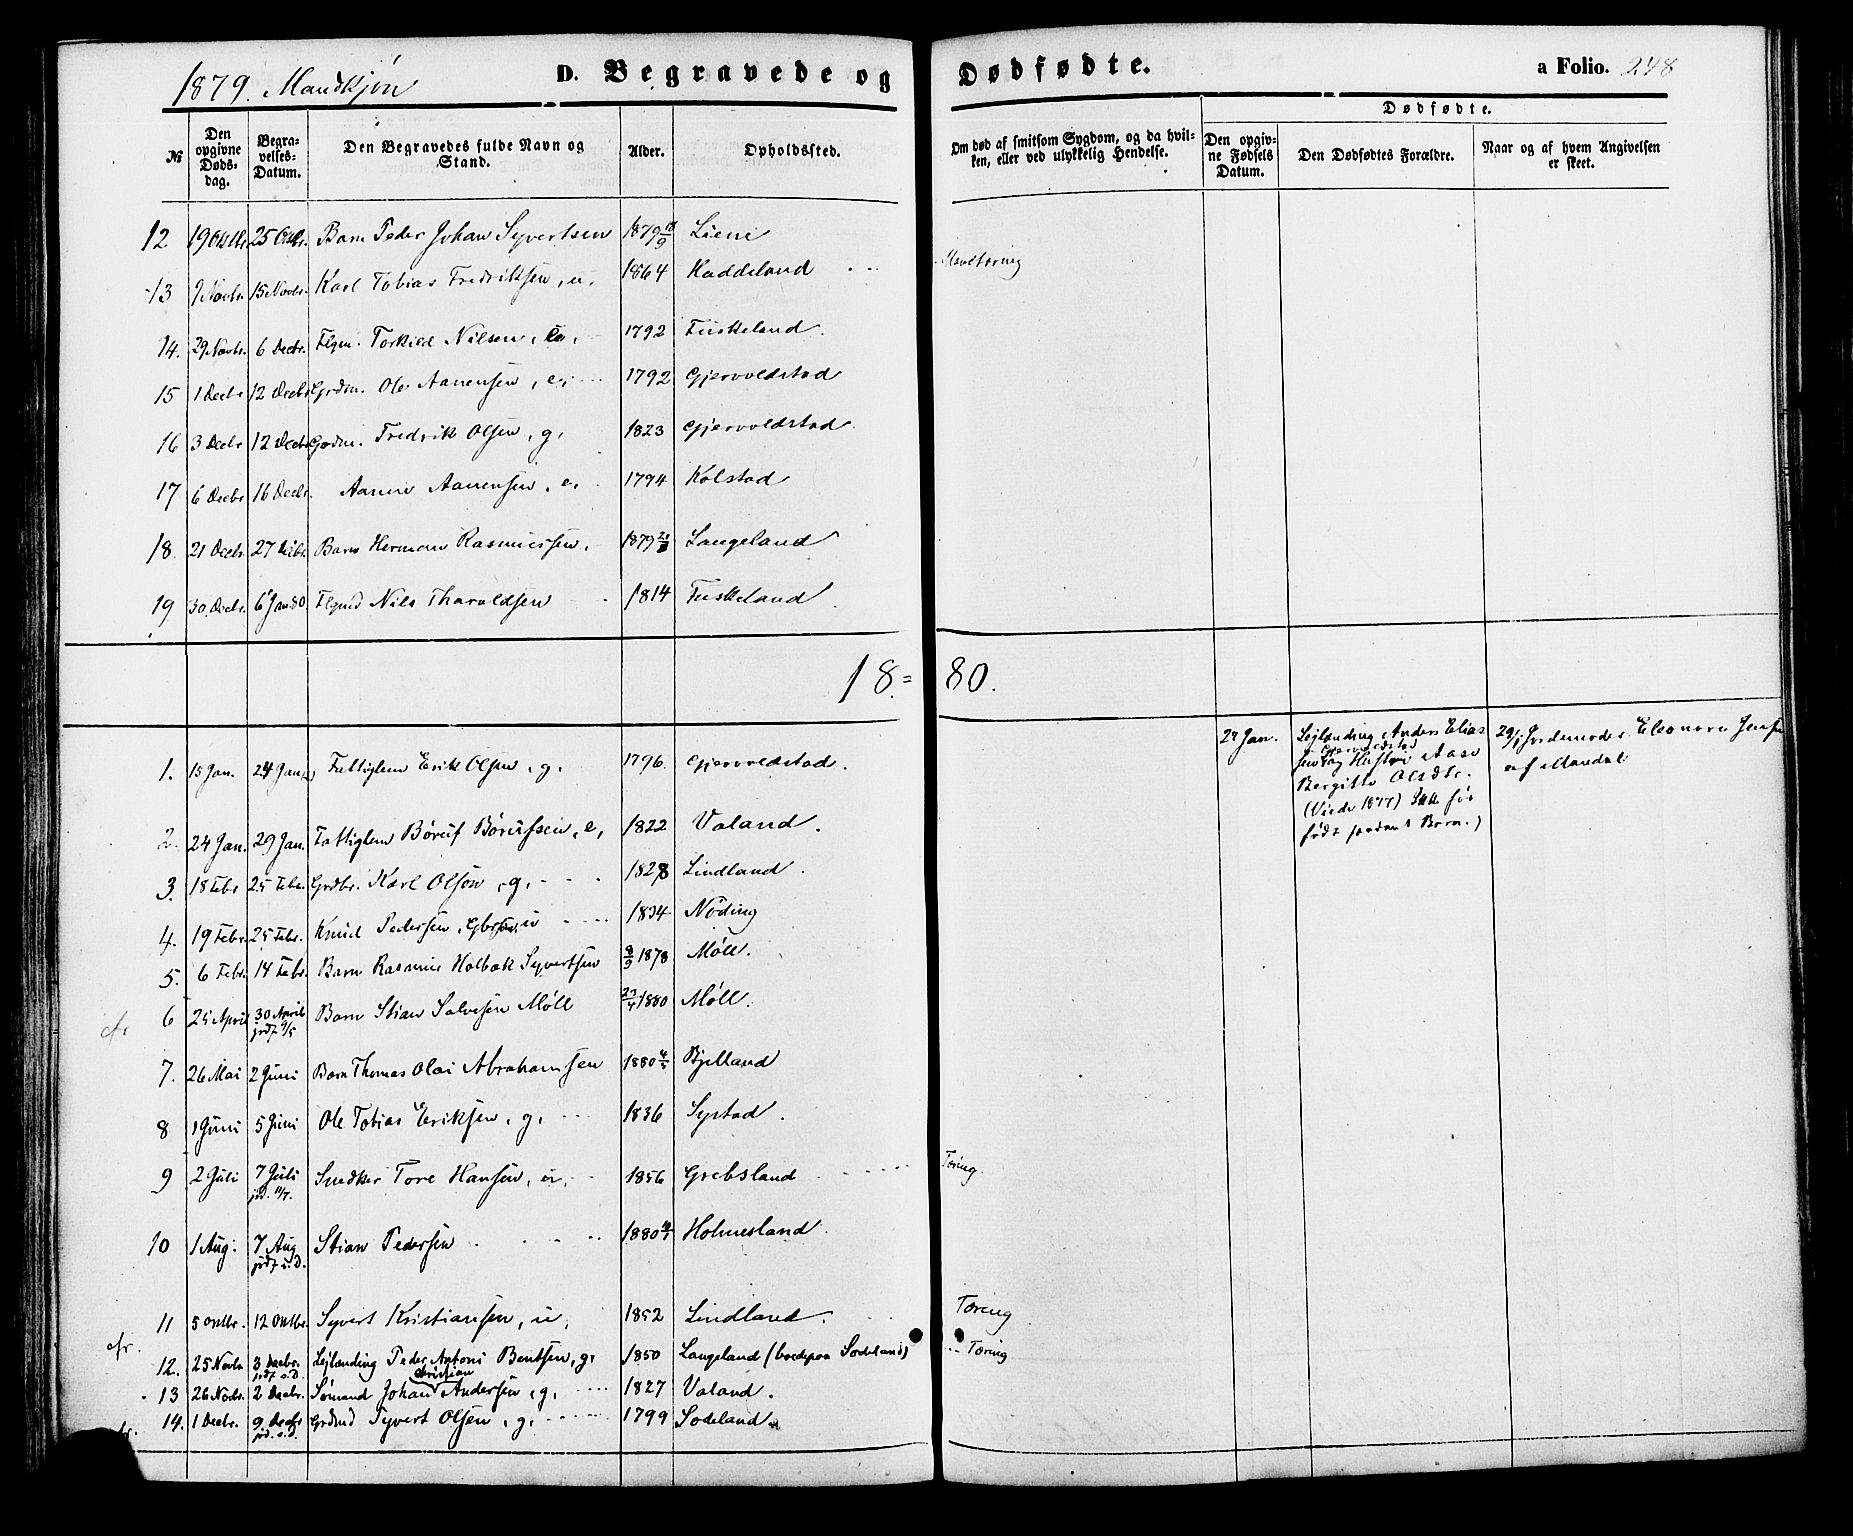 1879. Mandkjøn
D. Begravede og Dødfødte.
a Folio. 248
№
Den opgivne Døds-dag.
Begra-velses-Datum.
Den Begravedes fulde Navn og Stand.
Alder.
Opholdssted.
Om død af smitsom Sygdom, og da hvil-ken, eller ved ulykkelig Hendelse.
Dødfødte.
Den opgiv-ne Fødsels Datum.
Den Dødfødtes Forældre.
Naar og af hvem Angivelsen er skeet.
12 19 Octbr. 25 Octbr. Barn Peder Johan Syvertsen 1879 Lieni
13 9 Novbr. 15 Novbr. Karl Tobias Fredriksen, u, 1864 Haddeland Mavetæring
14. 29 Novbr. 6 Decbr. Torkild Nilsen, e, 1792 Fuskeland.
15 1 Decbr 12 Decbr Grdm. Ole Aanensen, e, 1792 Gjervoldstad
16 3 Decbr 12 Decbr Grdm. Fredrik Olsen, g, 1823 Gjervoldstad.
17 6 Decbr 16 Decbr. Aanen Aanensen, e, 1794 Kolstad
18. 21 Decbr. 27 Decbr. Barn Herman Rasmussen, 1879 Langeland
19 30 Decbr. 6 Jan 80 Nils Tharaldsen 1814 Fuskeland.
18=80.
1. 15 Jan. 24 Jan. Fattiglem Erik Olsen, g, 1796. Gjervoldstad.
27 Jan. Lejlænding Anders Elias-
sen Gjervoldstad og Hustru Aase
Bergitte Olsdtr.
(Viede 1877) Ikke før
født Barn.)
29/1 Jordemoder Eleonora Jensen
af Mandal
2. 24 Jan. 29 Jan. Fattiglem Børuf Børufsen, e, 1822 Valand.
3. 18 Febr 25 Febr. Grdbr. Karl Olsen, g, 1828 Lindland.
4. 19 Febr. 25 Febr. Knud Pedersen, u 1834 Nøding
5. 6 Febr. 14 Febr. Barn Rasmus Holbæk Syvertsen 8/9 1878 Møll.
cfr 6 25 April 30 April jrdf 9/5 Barn Stian Salvesen Møll 23/4 1880 Møll.
7. 26 Mai 2 Juni Barn Thomas Olai Abrahamsen 1880 4/5 Bjelland
8 1 Juni 5 Juni Ole Tobias Eriksen, g, 1836 Systad.
9 2 Juli 7 Juli jrd. 11/7. Snedker Tore Hansen, u, 1856 Grebsland Tæring.
10 1 Aug. 7 Aug jrdf s.D. Stian Pedersen 1880 Holmesland.
11 5 Octbr. 12 Octbr. Syvert Kristiansen, u, 1852 Lindland. Tæring
cfr. 12. 25 Novbr 3 Decbr. jrdf s.d. Lejlænding Peder Antoni Bentsen, g, 1850 Langeland (boede paa Sodeland) Tæring
13 26 Novbr. 2 Decbr. Sømand Johan Kristian Andersen, g, 1827 Valand.
cfr. 14. 1 Decbr. 9 Decbr jrd. s.d. Grdmd Syvert Olsen, g, 1799 Sodeland